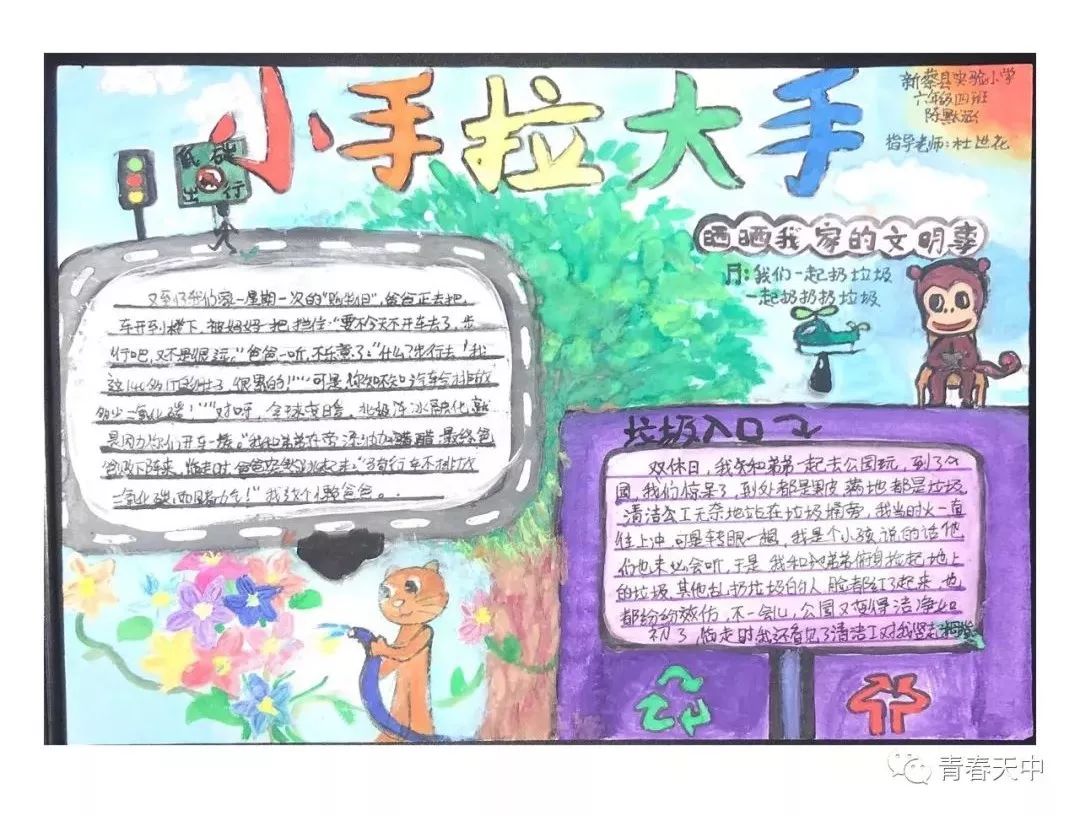 小手拉大手
新蔡县实验小学
六年级四班
陈默涵
指导老师:杜进花
低碳
出行
晒晒我家的文明事
月:我们一起扔垃圾
一起扔扔扔垃圾
又到了我们家一星期一次的"购物日",爸爸正去把
车开到楼下,被妈妈一把拦住:"要不今天不开车去了,步
行吧,又不是很远。"爸爸一听,不乐意了:"什么?步行去!我
这140多斤的肚子,很累的!""可是你知不知汽车会排放
多少二氧化碳!""对呀,全球变暖,北极冻冰融化,就
是因为你们开车族。"我和弟弟在旁添油加醋,最终爸
爸败下阵来,临走时,爸爸突然
二氧化碳,而且省力气!"我
垃圾入口
双休日,我和弟弟一起去公园玩,到了公
园,我们惊呆了,到处都是果皮,满地都是垃圾,
清洁公工无奈地站在垃圾桶旁,我当时火一直
往上冲,可是转眼一想,我是个小孩说的话他
们也未必会听,于是,我和弟弟俯身捡起地上
的垃圾,其他乱扔垃圾的人脸都红了起来,也
都纷纷效仿,不一会儿,公园又变得洁净如
初了,临走时我还看见了清洁工对我竖起拇指
青春天中